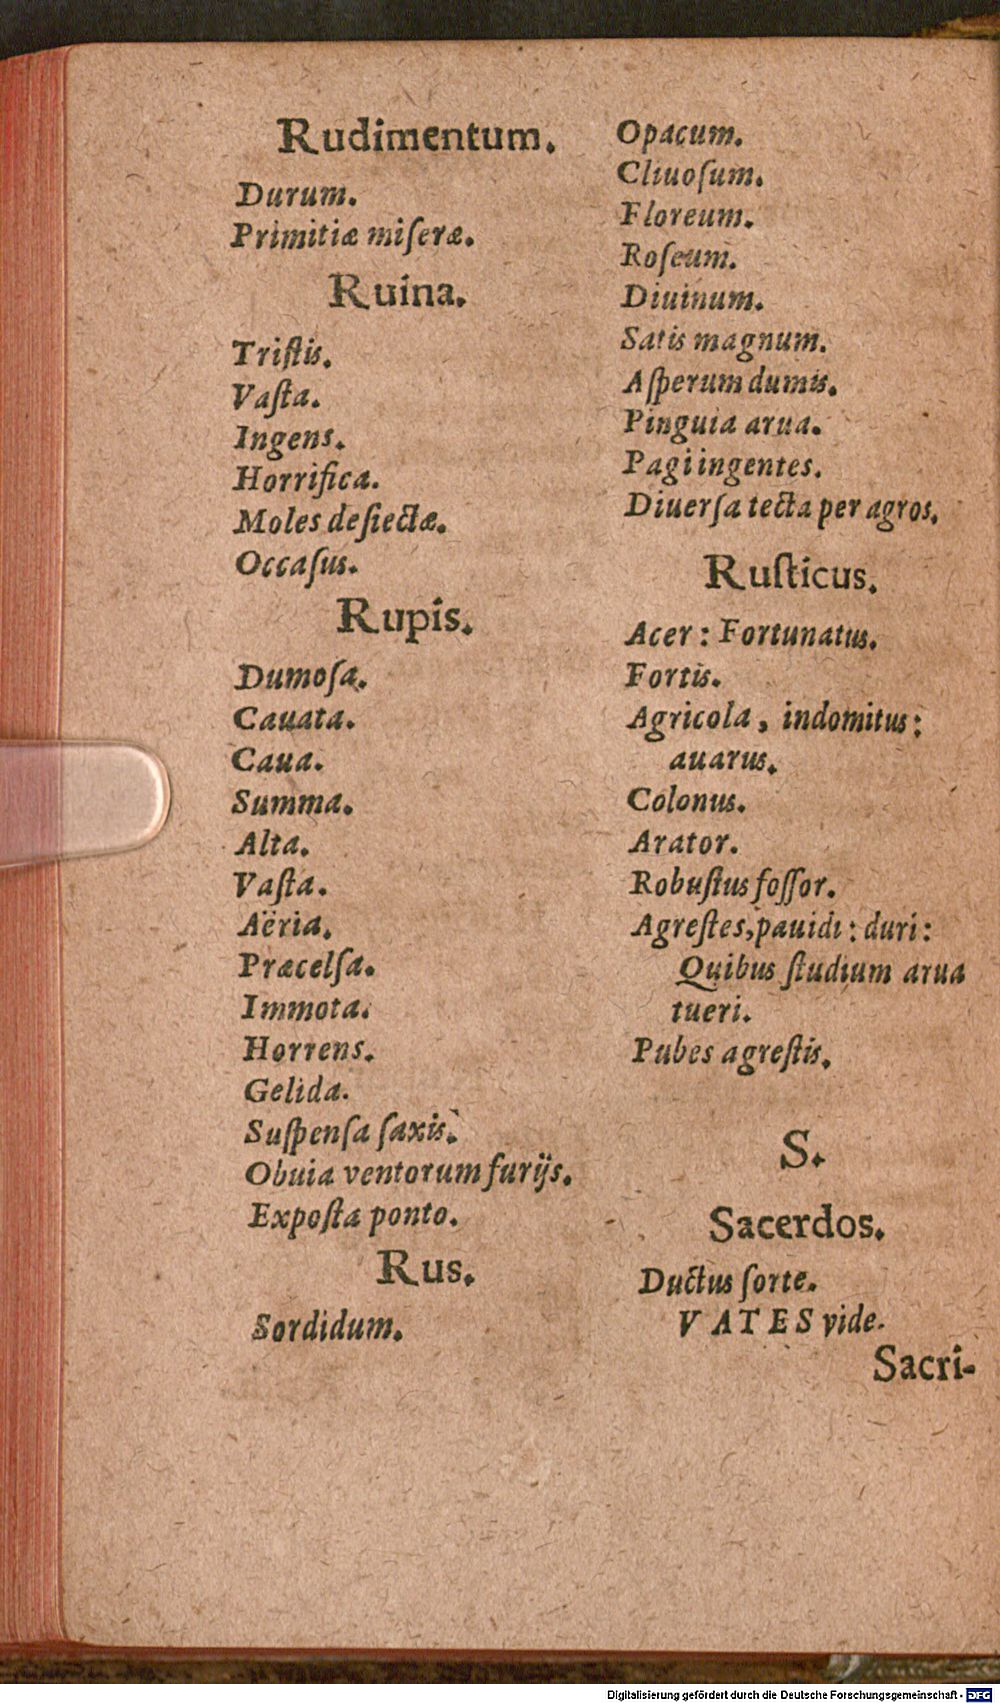 Rudimentum.
Durum.
Primitiæ miſeræ.
Ruina.
Triſtis.
Vaſta.
Ingens.
Horrifica.
Moles deiectæ.
Occaſus.
Rupis.
Dumoſa.
Cauata.
Caua.
Summa.
Alta.
Vaſta.
Aëria.
Præcelſa.
Immota.
Horrens.
Gelida.
Suſpenſa ſaxis.
Obuia ventorum furijs.
Expoſta ponto.
Rus.
Sordidum.
Opacum.
Cliuoſum.
Floreum.
Roſeum.
Diuinum.
Satis magnum.
Aſperum dumis.
Pinguia arua.
Pagi ingentes.
Diuerſa tecta per agros.
Ruſticus.
Acer: Fortunatus.
Fortis.
Agricola, indomitus:
auarus.
Colonus.
Arator.
Robuſtus foſſor.
Agreſtes, pauidi: duri:
Quibus ſtudium arua
tueri.
Pubes agreſtis.
S.
Sacerdos.
Ductus ſorte.
VATES vide.
Sacri-
Digitalisierung gefördert durch die Deutsche Forschungsgemeinschaft - DFG